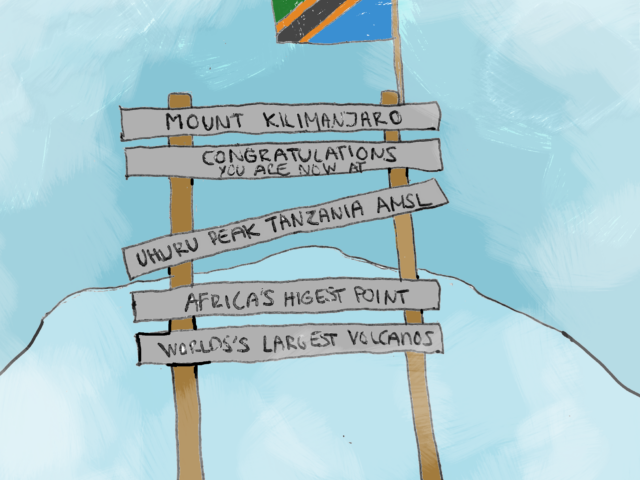 MOUNT KILIMANJARO
CONGRATULATIONS
YOU ARE NOW AT
UHURU PEAK TANZANIA AMSL
AFRICA'S HIGEST POINT
WORLDS'S LARGEST VOLCANOS